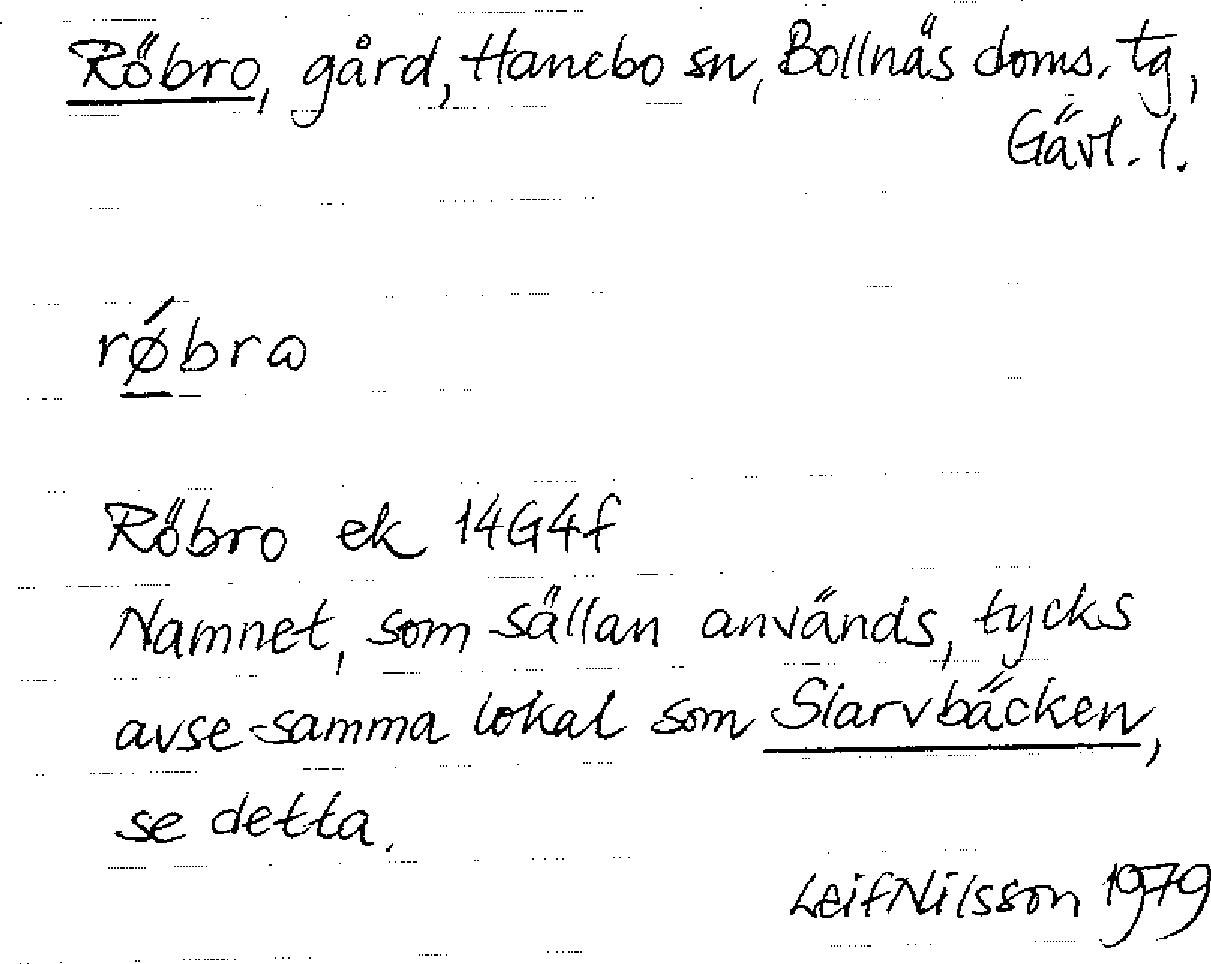 Röbro, gård, Hanebo sn, Bollnäs doms. tg,
Gävl. l.
rǿbra
Röbro ek 14G4f
Namnet, som sällan används, tycks
avse samma lokal som Slarvbäcken,
se detta.
Leif Nilsson 1979